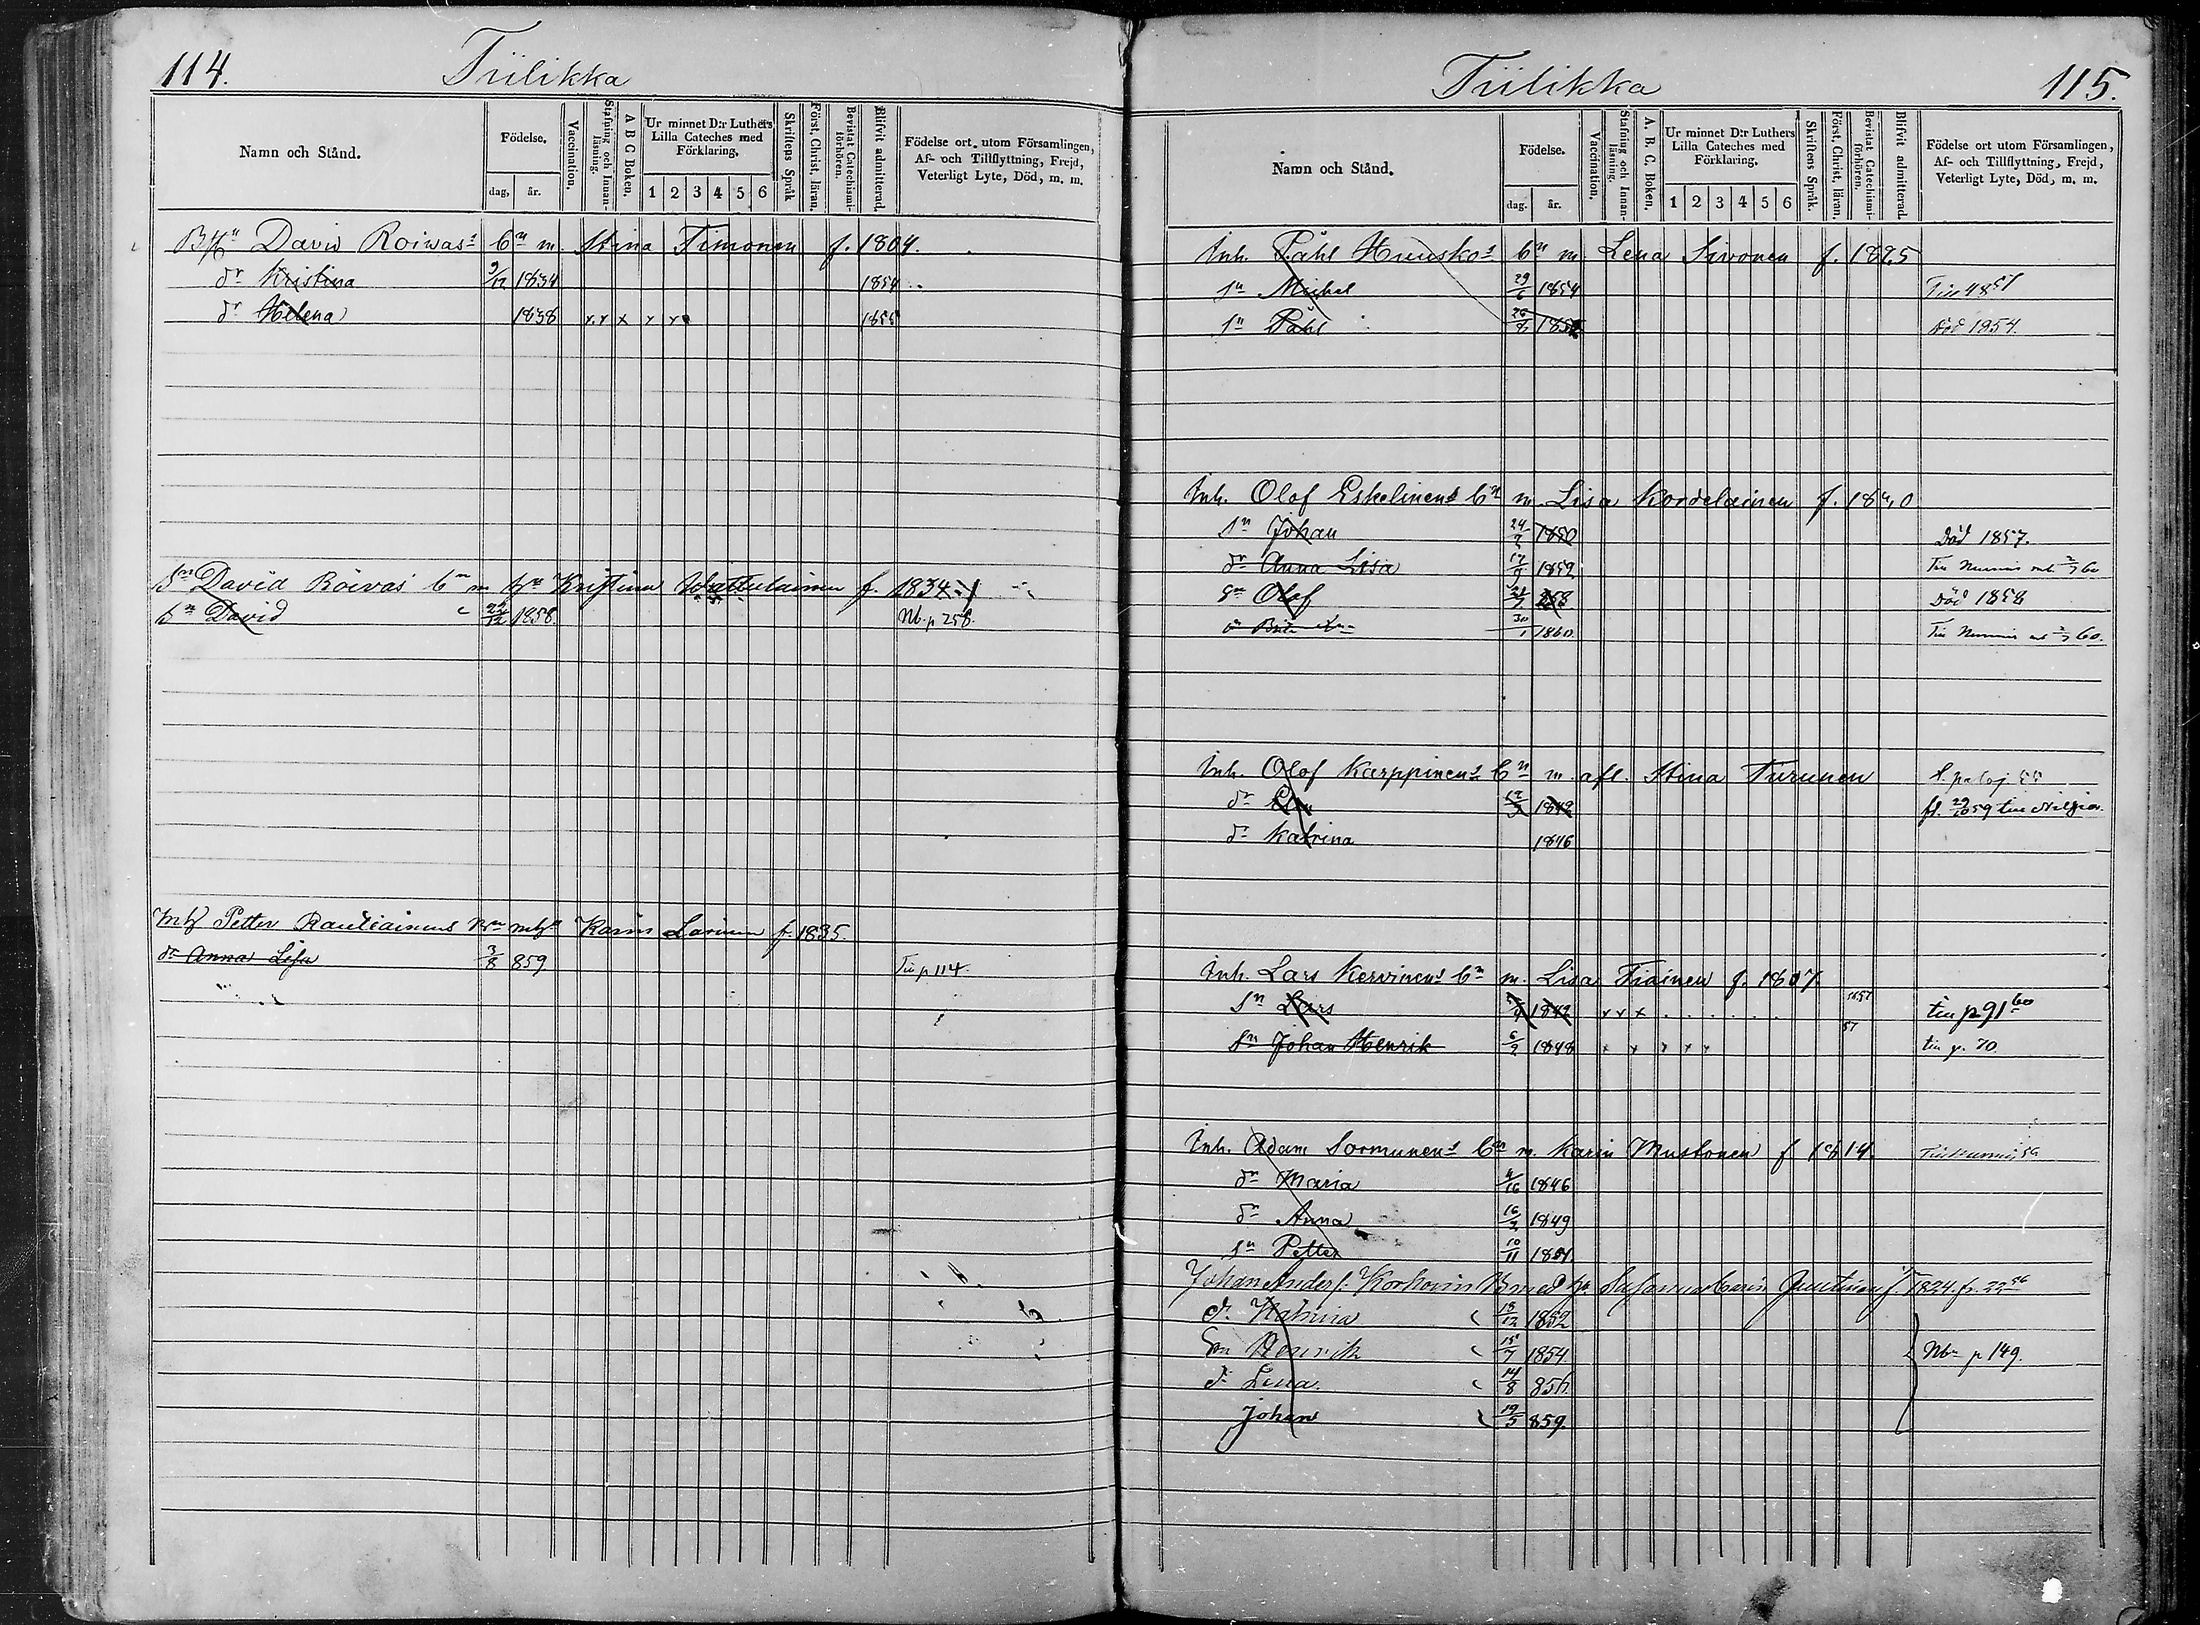 114.
Tiilikka
Namn och Stånd.
Födelse.
dag, år.
Vaccination.
Stafning och Innanläsning.
A B C Boken.
Ur minnet D:r Luthers Lilla Cateches med Förklaring.
1 2 3 4 5 6
Skriftens Språk
Först. Christ. läran.
Bevistat Catechismiförhören.
Blifvit admitterad.
Födelse ort, utom Församlingen,
Af- och Tillflyttning, Frejd,
Veterligt Lyte, Död, m. m.
David Roiwas m Stina Timonen f. 1804.
dr Kristina 9/12 1834 1854
dr Helena 1838 x x x x x 1855
Sn David Roivas m Kristina f. 1834
Sn David 22/12 1858. Nb. p 258.
Petter Rautiainens Karin Larinen f. 1835.
dr Anna Lisa 3/8 859 Tin p 114.
Tiilikka
115.
Namn och Stånd.
Födelse.
dag. år.
Vaccination.
Stafning och Innanläsning.
A. B. C. Boken.
Ur minnet D:r Luthers Lilla Cateches med Förklaring.
1 2 3 4 5 6
Skriftens Språk.
Först. Christ. läran.
Bevistat Catechismiförhören.
Blifvit admitterad
Födelse ort utom Församlingen,
Af- och Tillflyttning, Frejd,
Veterligt Lyte, Död, m. m.
Inh. Påhl Huusko m Lena Sivonen f. 1825
sn Michel 29/6 1854
sn Påhl 26/8 Död 1854.
Inh. Olof Eskelinens m Lisa Kordelainen f.
sn Johan 24/2 1850 Död 1857.
dr Anna Lisa 1852
Sn Olof 858 Död 1858
30/1 1860
Inh. Olof Karppinens m afl. Stina Turunen
dr
dr Katrina 1846
Inh. Lars Kervinens m. Lisa Tiainen f. 1807.
sn Lars 1842 x x x 1857 tin p 91 60
sn Johan Henrik 6/2 1848 x x x x x 57 tin p. 70.
Inh. Adam Sormunens m. Karin Mustonen f 1814.
dr Maria 1846
dr Anna 16/2 1849
sn Petter 10/11 1851.
Johan Anders s. Korhonen med Susanna Carin f. 1824. fr. 22 56
d. Katrina 18/12 1852
Sn Henrik 15/7 1854 Nb p 149.
d. Lena. 14/8 856
Johan 19/5 859.